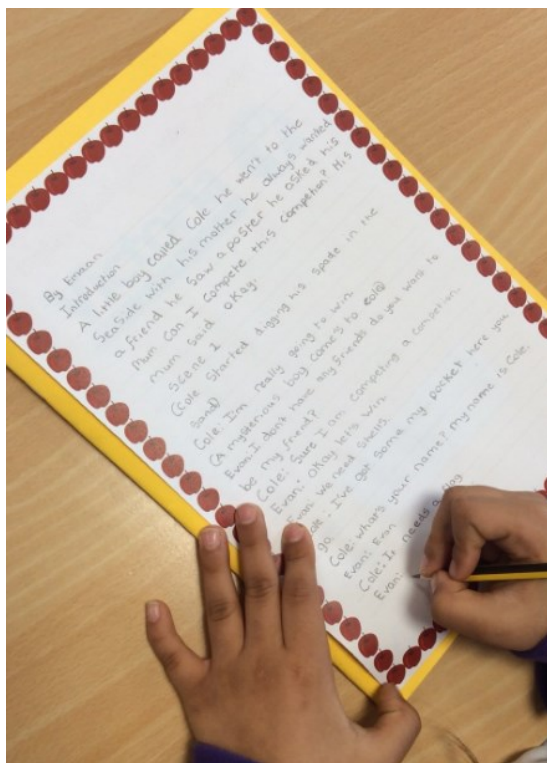 By Emaan
Introduction
A little boy called Cole he wen't to the
Seaside with his mother he always wanted
a friend he saw a poster he asked his
Mum can I compete this competion? His
mum said okay.
Scene 1
(Cole started digging his spade in the
sand)
Cole: I'm really going to win.
(A mysterious boy comes to cole)
Evan: I don't have any friends do you want to
be my friend?
Cole: Sure I am competing a competion.
Evan: Okay let's win.
Evan: We need shells.
Cole: I've got some my pocket here you
go.
Cole: What's your name? my name is Cole.
Evan: Evan
Cole: It needs a flag
Evan: